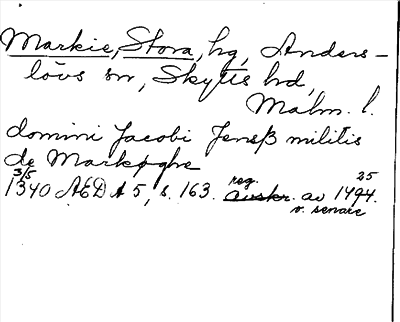 Markie, Stora, hg, Anders-
lövs sn, Skytts hd,
Malm. l.
domini Jacobi Jensß militis
de Markøghe
3/5 1340 ÆDA 5, s. 163. reg. avskr. av 1494. 25
o. senare